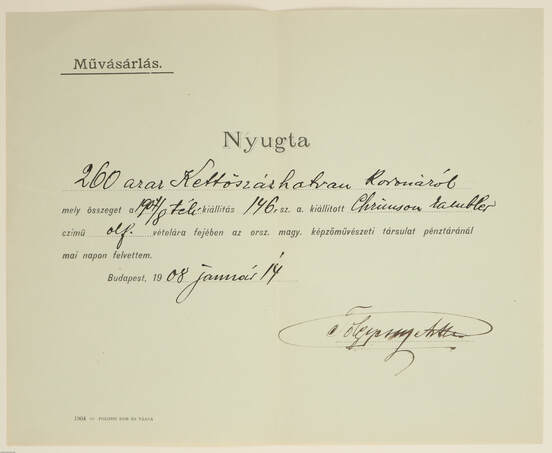 Művásárlás.
Nyugta
260 azaz Kettőszázhatvan Koronáról
mely összeget a 1907/8 téli kiállitás 146 sz. a. kiállított Chrimson rambler
czímű olf. vételára fejében az orsz. magy. képzőművészeti társulat pénztáránál
mai napon felvettem.
Budapest, 1908 január 14